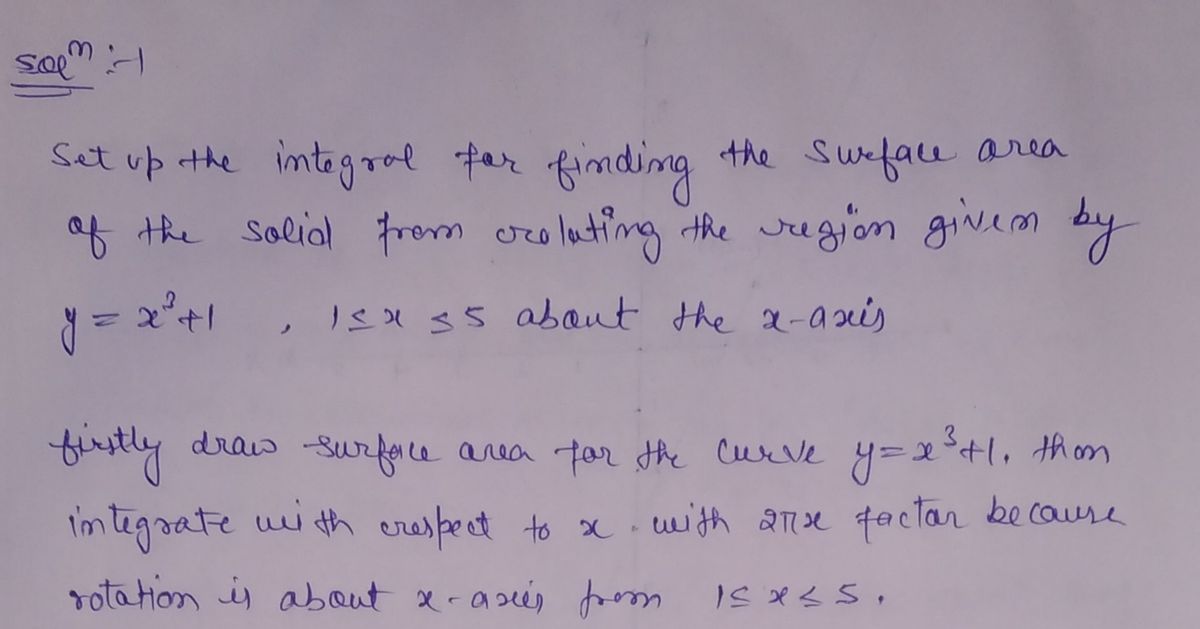 Solⁿ :-1
Set up the integral for finding the surface area
of the solid from rotating the region given by
y = x³+1 , 1≤x≤5 about the x-axis
firstly draw surface area for the curve y=x³+1. then
integrate with respect to x. with 2πx factor because
rotation is about x-axis from 1≤x≤5.